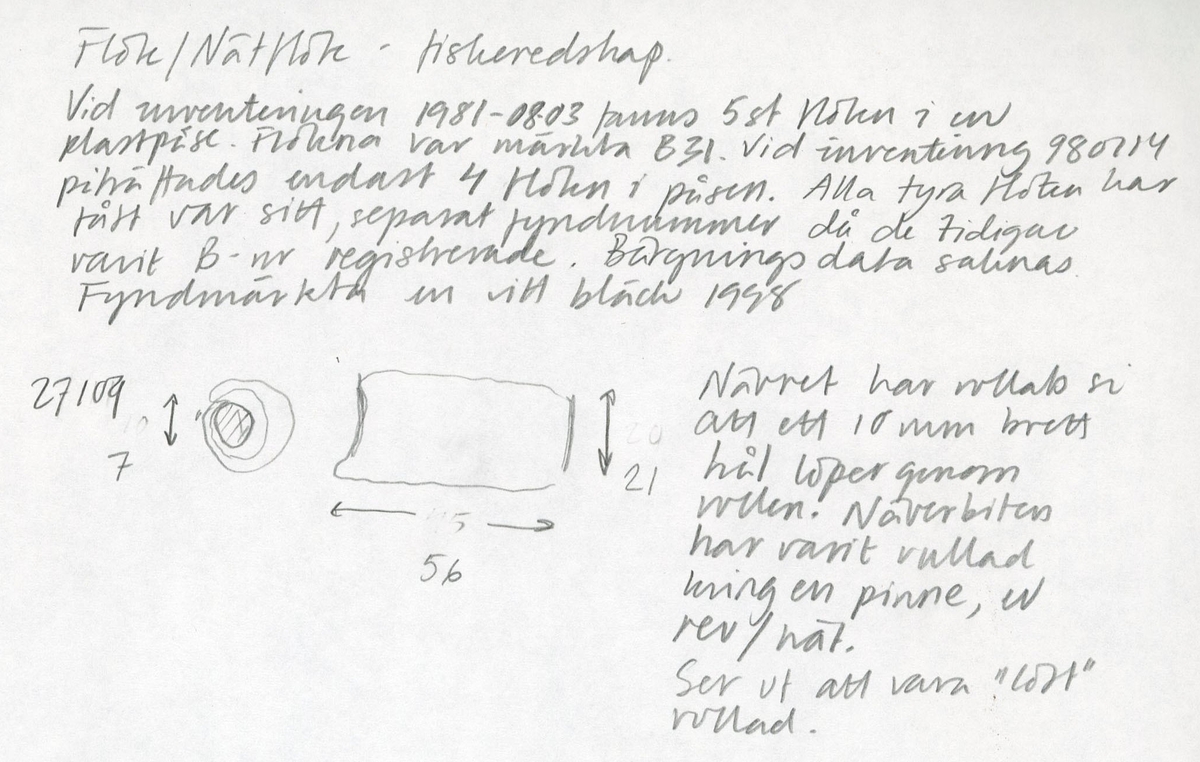 Flöte/Nätflöte - fiskeredskap.
Vid inventeringen 1981-08-03 fanns 5st flöten i en
plastpåse. Flötena var märkta B31. Vid inventering 980714
påträffades endast 4 flöten i påsen. Alla fyra flöten har
fått var sitt, separat fyndnummer då de tidigare
varit B-nr registrerade. Bärgningsdata saknas.
Fyndmärkta en vitt bläck 1998
27109
7
21
56
Nävret har rullats så
att ett 10 mm brett
hål löper genom
rullen. Näverbiten
har varit rullad
kring en pinne, ev
rev/nät.
Ser ut att vara "löst"
rullad.